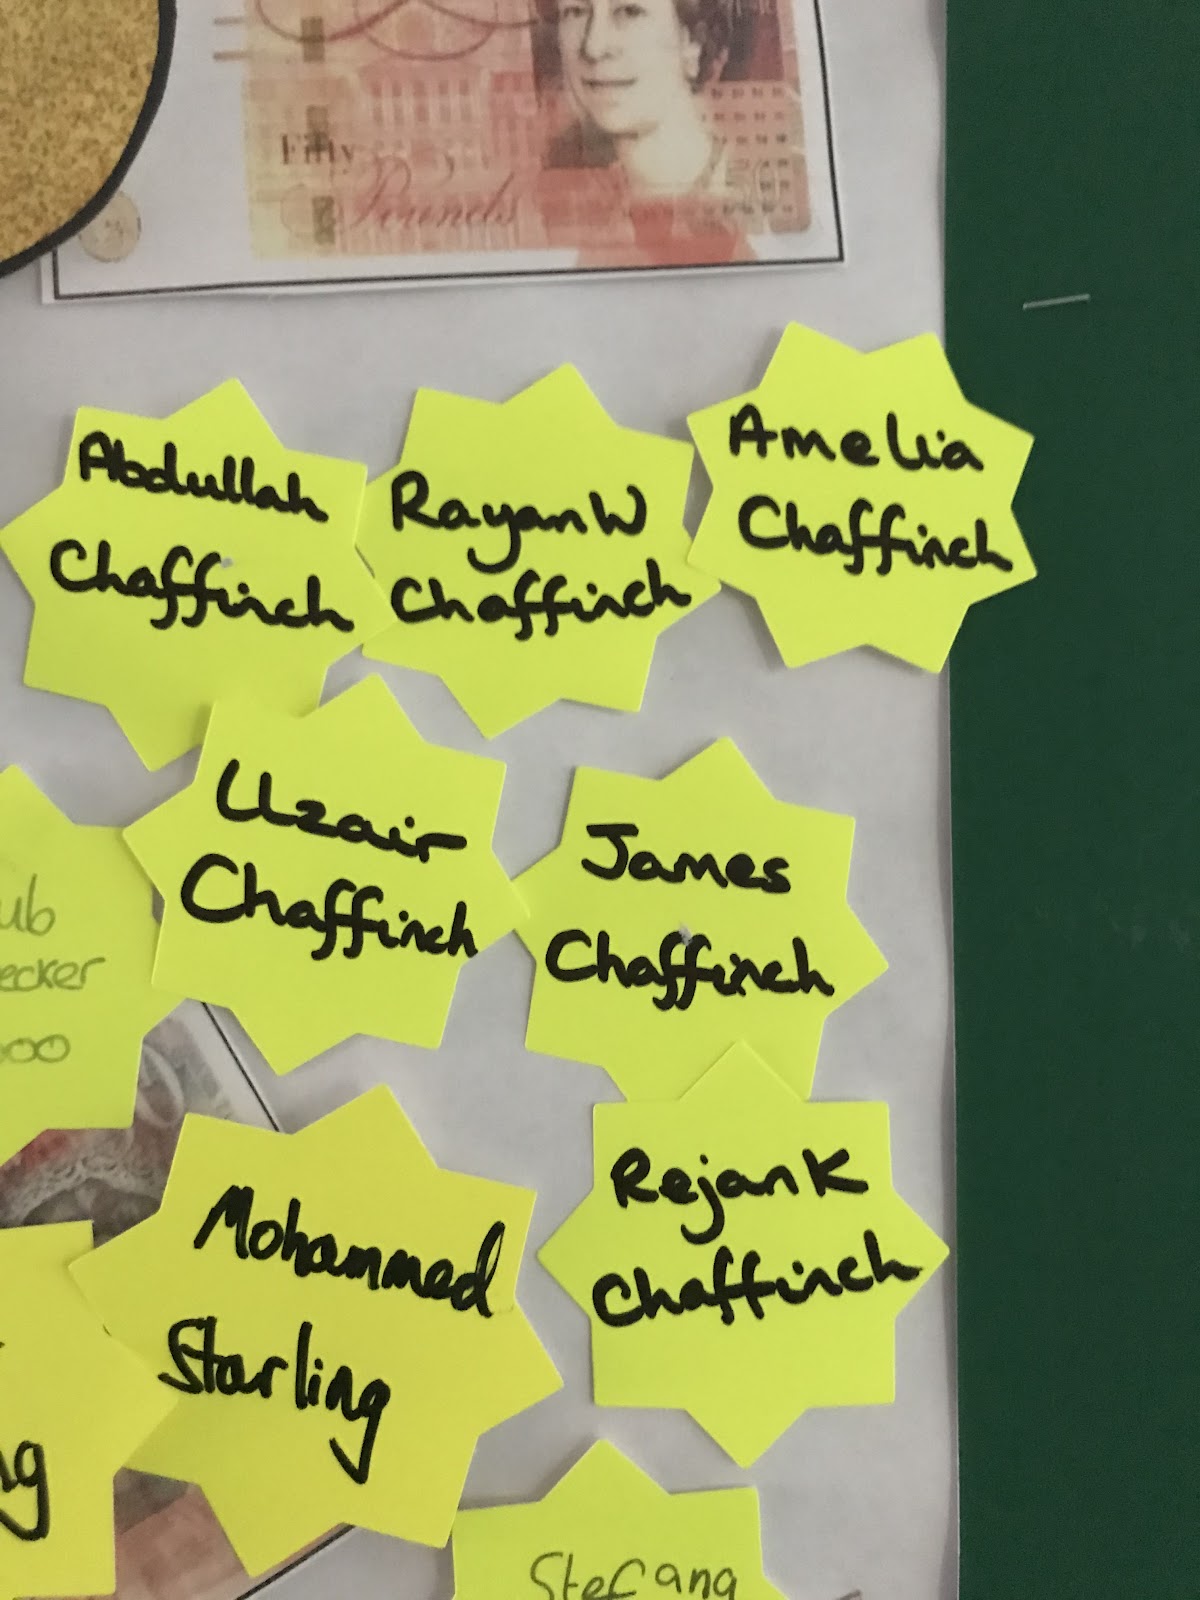 Fifty
Pounds
50
Abdullah
Chaffinch
Rayan W
Chaffinch
Amelia
Chaffinch
Uzair
Chaffinch
James
Chaffinch
Mohammed
Starling
Rejan K
Chaffinch